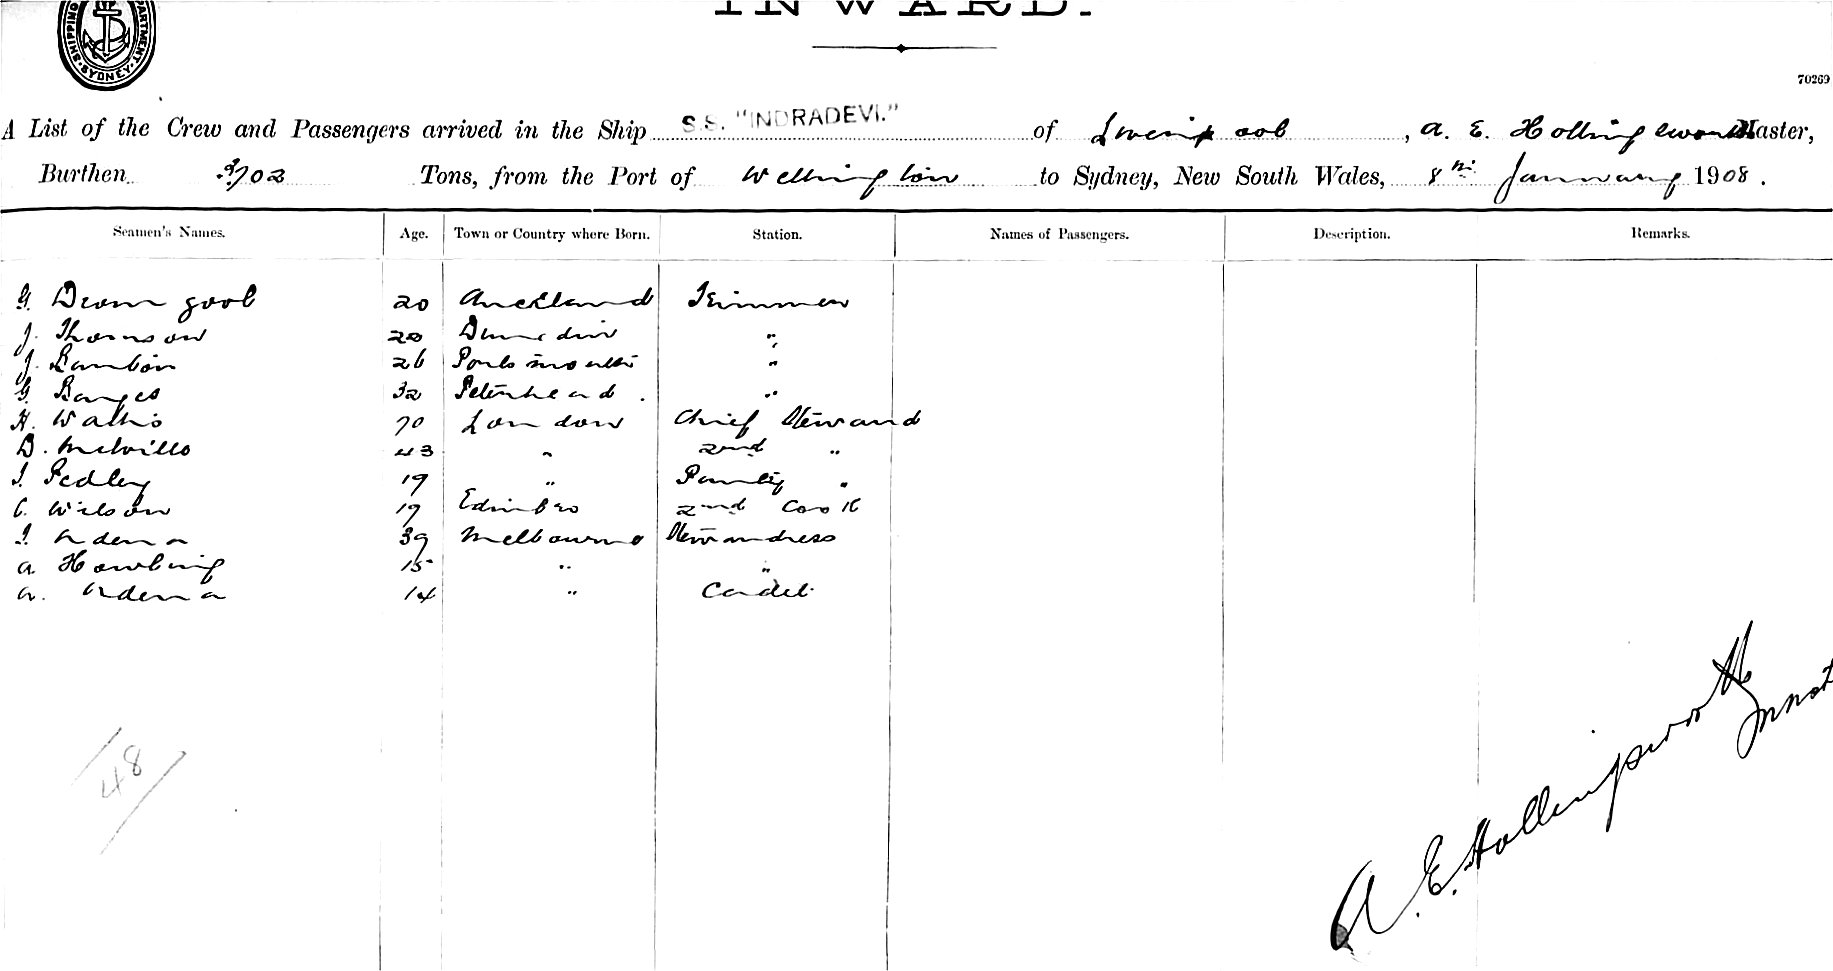 INWARD.
SHIPPING DEPARTMENT. SYDNEY.
70269
A List of the Crew and Passengers arrived in the Ship S.S. "INDRADEVI." of Liverpool, A. E. Hollingsworth Master,
Burthen 3702 Tons, from the Port of Wellington to Sydney, New South Wales, 8th January 1908.
Seamen's Names. Age. Town or Country where Born. Station. Names of Passengers. Description. Remarks.
G. Dromgool 20 Auckland Trimmer
J. Thomson 20 Dunedin "
J. 26 Portsmouth "
G. 32 Peterhead. "
H. Wallis 70 London Chief Steward
D. Melville 43 " 2nd "
T. Pedley 19 " Pantry "
C. Wilson 19 Edinbro 2nd Cook
I. Ardema 39 Melbourne Stewardess
A. Howling 15 " "
A. Ardema 14 " Cadet
48
A. E. Hollingsworth